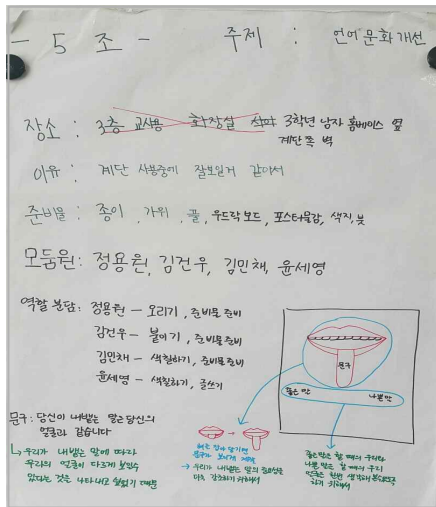 - 5 조 - 주제 : 언어문화개선
장소 : 3층 교사용 화장실 3학년 남자 홈베이스 옆
계단 쪽 벽
이유 : 계단 사용중에 잘보일거 같아서
준비물 : 종이, 가위, 풀, 우드락보드, 포스터물감, 색지, 붓
모둠원: 정용원, 김건우, 김민채, 윤세영
역할 분담: 정용원 - 오리기, 준비물 준비
김건우 - 붙이기, 준비물준비
김민채 - 색칠하기, 준비물준비
윤세영 - 색칠하기, 글쓰기
문구
좋은 말 나쁜말
문구: 당신이 내뱉는 말은 당신의
얼굴과 같습니다
우리가 내뱉는 말에 따라
우리의 얼굴이 다르게 보일수
있다는 것을 나타내고 싶었기 때문
문구가 보이게
→ 우리가 내뱉는 말의 중요성을
더욱 강조하기 위해서
좋은말을 할 때의 우리와
나쁜말을 할 때의 우리
얼굴을 한번 생각해
하기 위해서